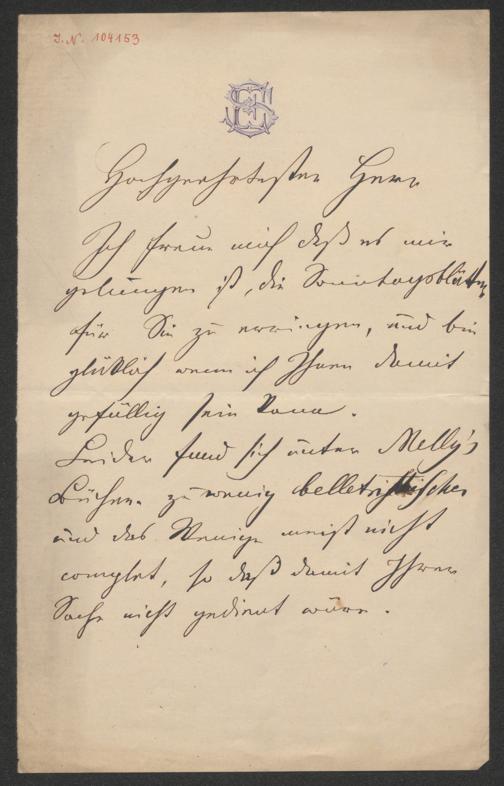 I. N. 104153
Hochgeehrtester Herr
Ich freue mich daß es mir
gelungen ist, die Sonntagsblätter
für Sie zu erringen, und bin
glüklich wenn ich Ihnen damit
gefällig sein kann.
Leider fand sich unter Melly's
Bücher zu wenig belletristisches
und das Wenige meist nicht
complet, so daß damit Ihrer
Sache nicht gedient wäre.